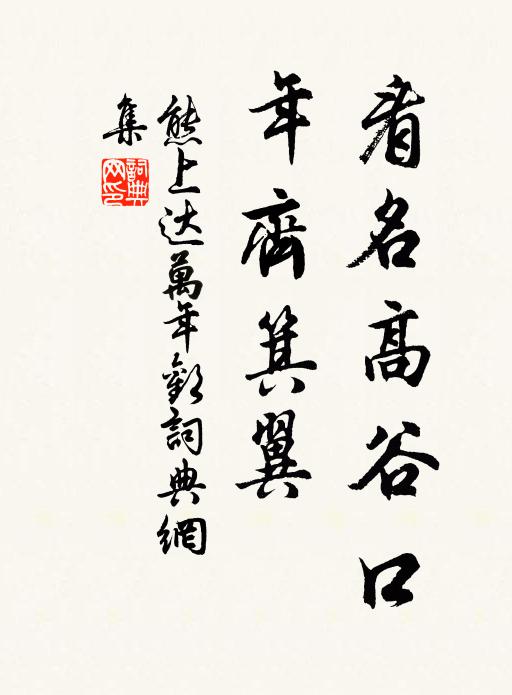 看名高谷口
年齊箕翼
熊上达萬年歡詞典網
集
詞典
网印